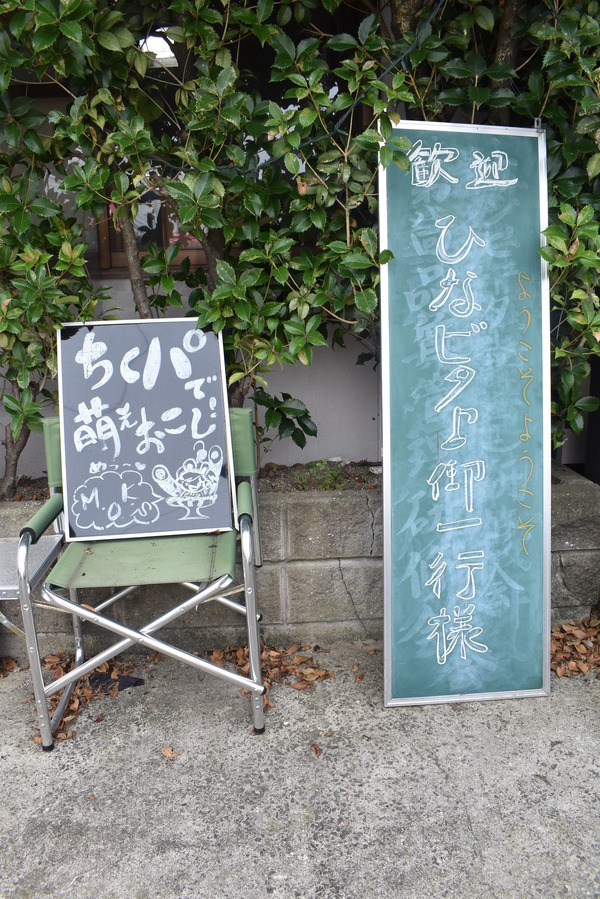 ちくパで!
萌えおこし
M.O.K.S
歓迎
ひなビタ♪御一行様
ようこそようこそ